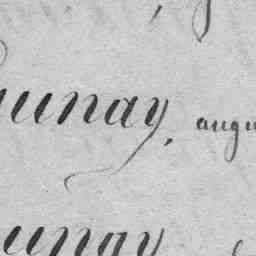 aunay, augu
aunay